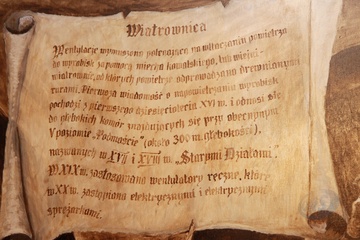 Wiatrownica
Wentylacje wymuszono polegającą na wtłaczaniu powietrza
do wyrobisk za pomocą miecha kowalskiego, lub wiejni-
wiatrownic, od których powietrze odprowadzano drewnianymi
rurami. Pierwsza wiadomość o napowietrzaniu wyrobisk
pochodzi z pierwszego dziesięciolecia XVI w. i odnosi się
do głębokich komór znajdujących się przy obecnym
V poziomie (około 300 m. głębokości),
nazwanych w XVII i XVIII w. „Starymi Działami".
W XIX w. zastosowano wentylatory ręczne, które
w XX w. zastąpiono elektrycznymi i elektrycznymi
sprężarkami.